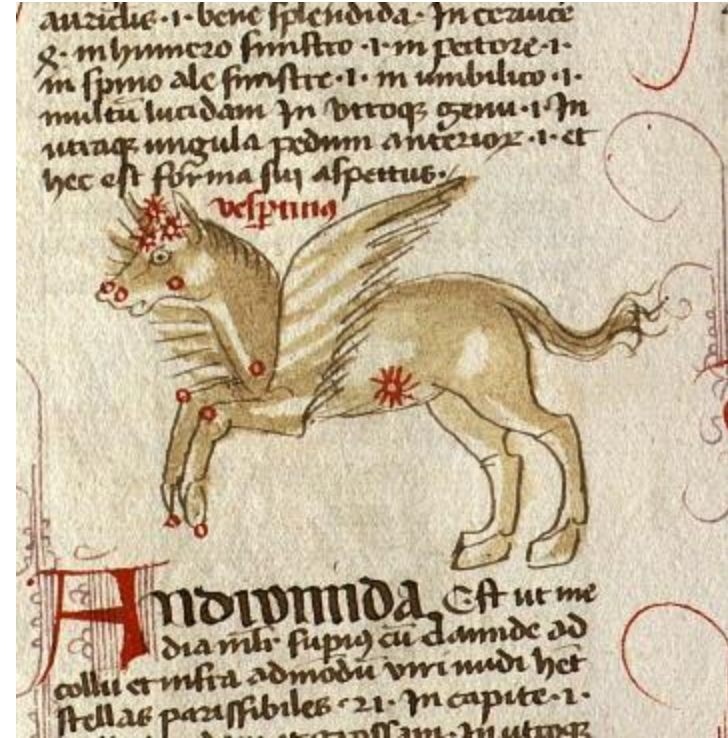 auriclis ·1· bene splendida· In ceruice
in humero sinistro ·1· in pectore ·1·
in spino ale sinistre ·1· in umbilico ·1·
multū lucidam In vtroqꝫ genu ·1· In
utraqꝫ ungula pedum anterioꝝ ·1· et
hec est forma sui aspectus·
Andromida Est ut me
dia mlr supiꝰ cū clamide ad
collū et infra admodū viri nudi het
stellas parissibiles ·21· In capite ·1·
In utroqꝫ